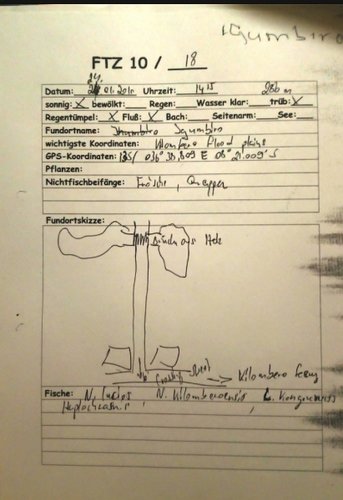 Igumbiro
FTZ 10 / 18
Datum: 24.01.2010 Uhrzeit: 14 15 286 m
sonnig: X bewölkt: Regen: Wasser klar: trüb: X
Regentümpel: X Fluß: X Bach: Seitenarm: See:
Fundortname: Igumbiro
wichtigste Koordinaten: Kilombero Flood plains
GPS-Koordinaten: 036° 38,809 E 08° 21.009' S
Pflanzen:
Nichtfischbeifänge: Frösche, Quappen
Fundortskizze:
Brücke aus Holz
Road
Kilombero Ferry
Fische: N. N. Kilomberoensis,